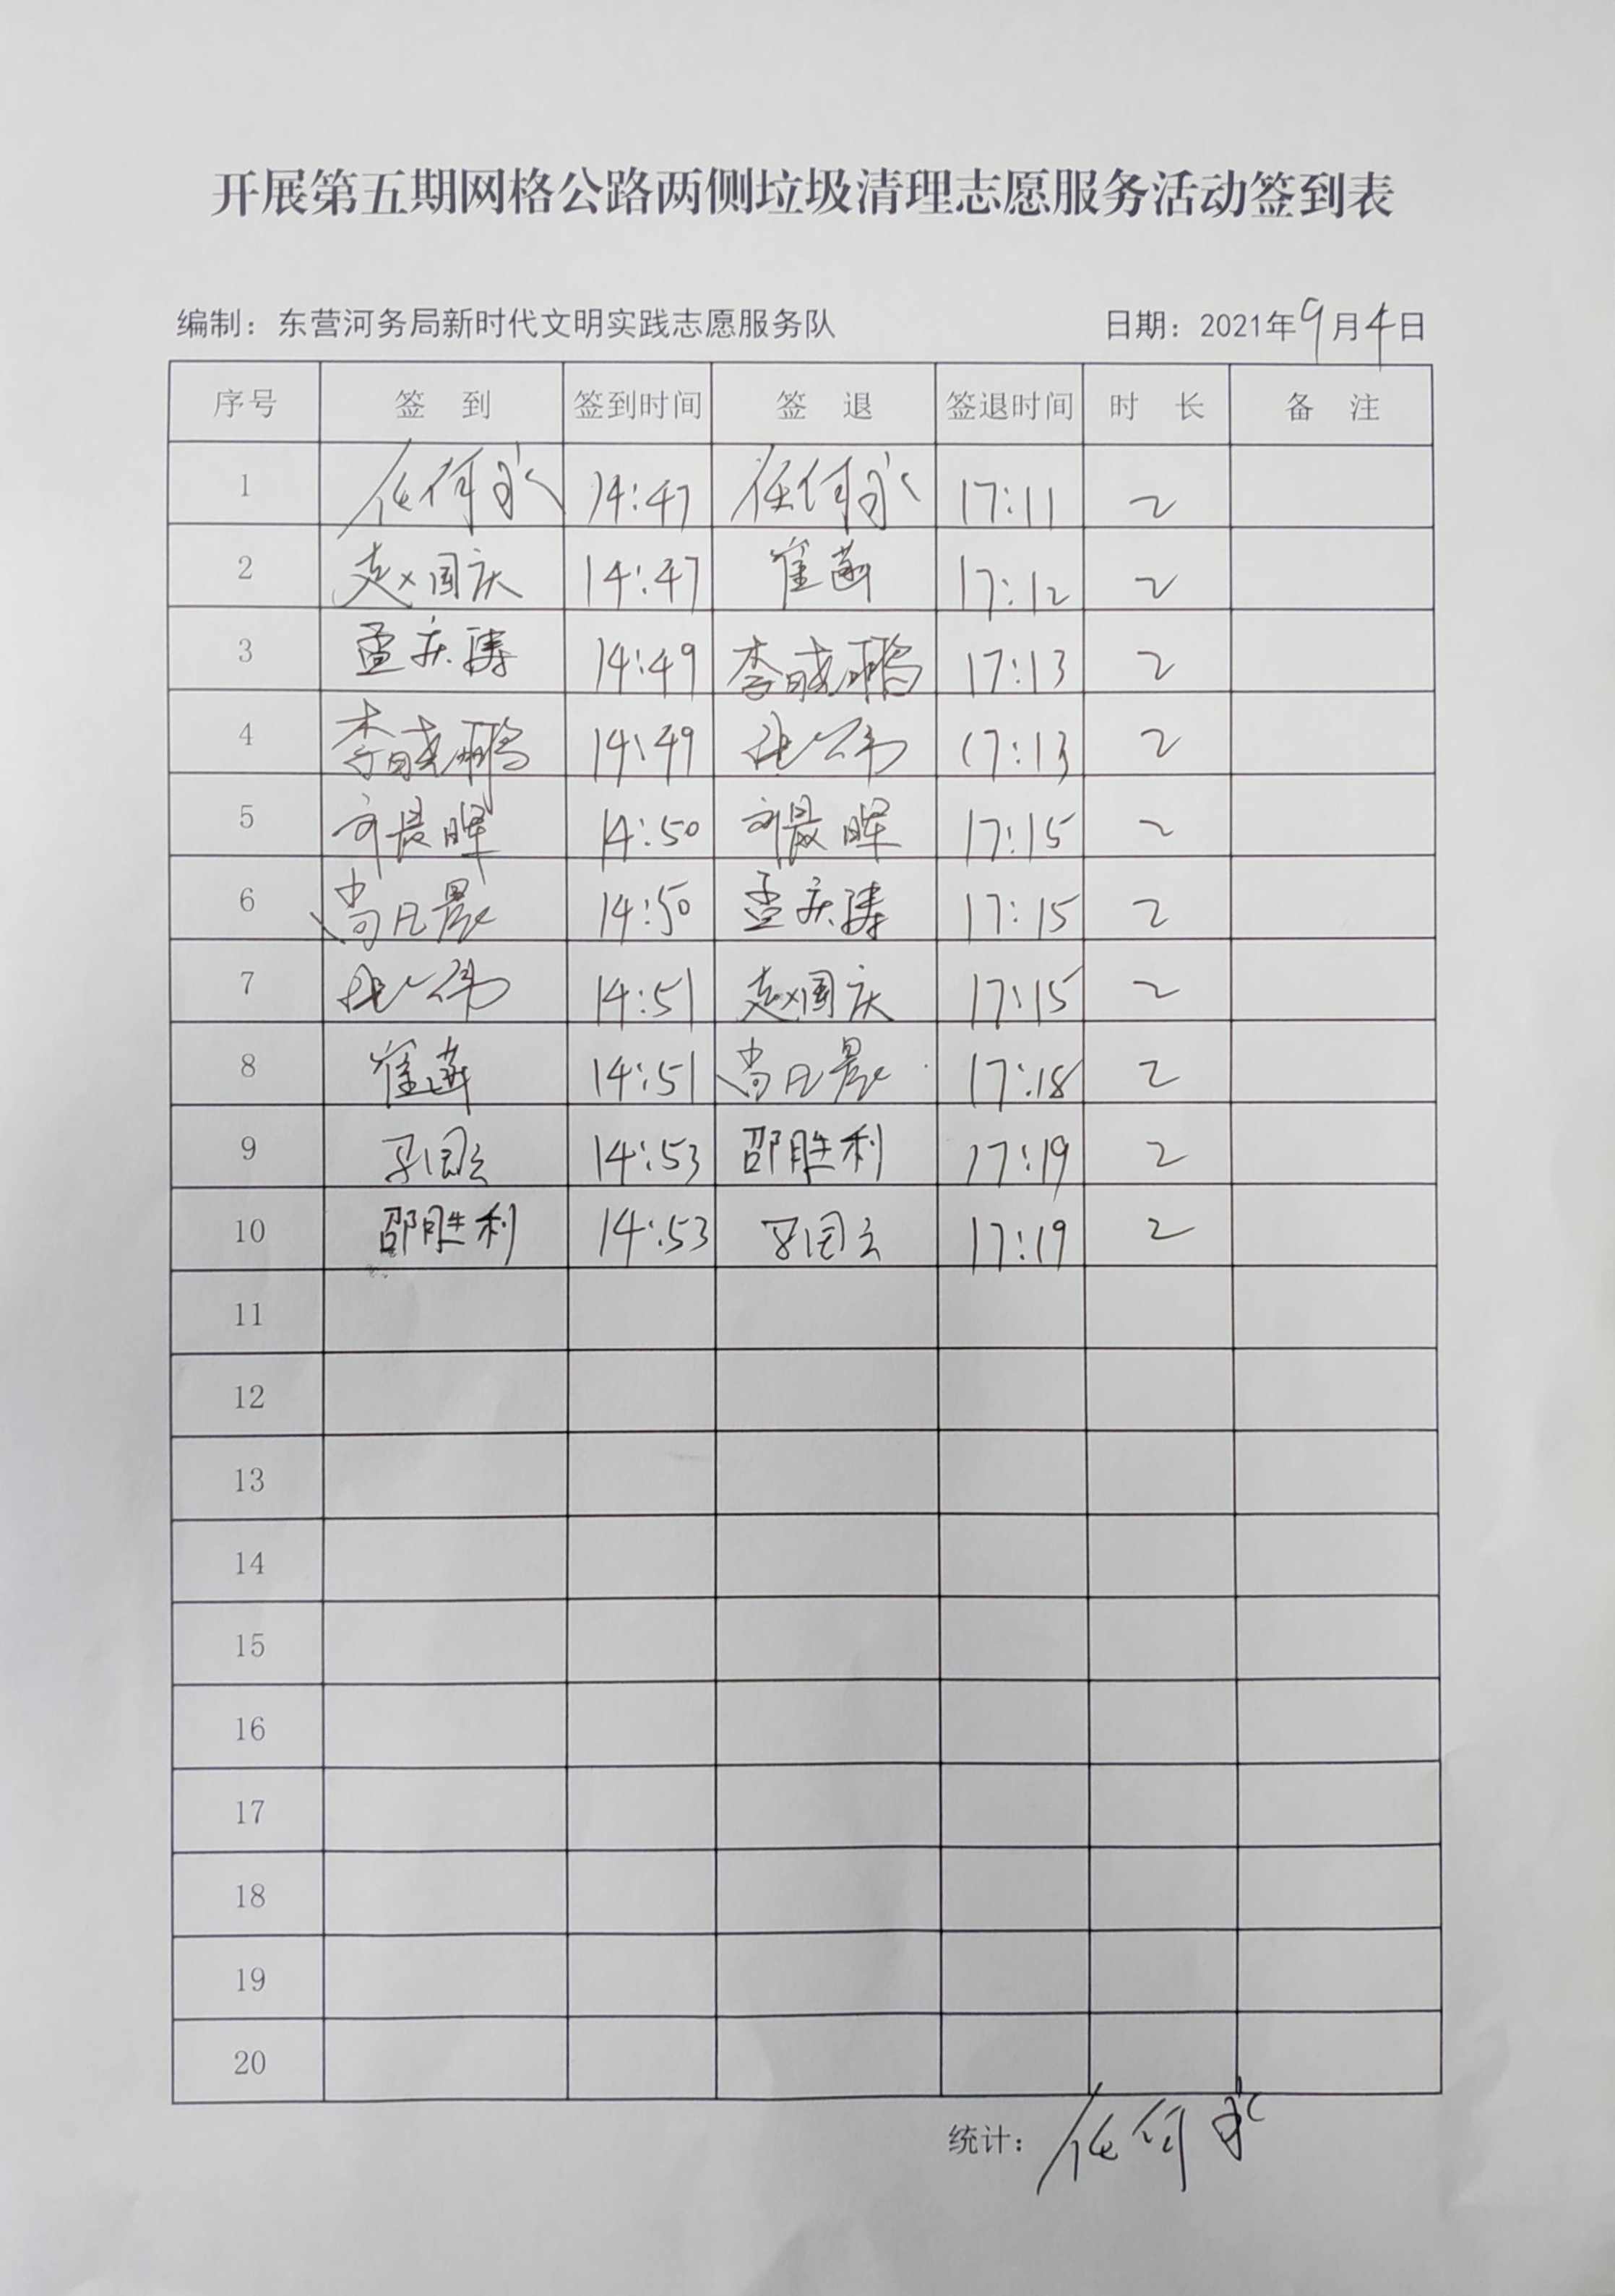 开展第五期网格公路两侧垃圾清理志愿服务活动签到表
编制：东营河务局新时代文明实践志愿服务队 日期：2021年9月4日
序号 签到 签到时间 签退 签退时间 时长 备注
1 任何永 14:47 任何永 17:11 2
2 赵国庆 14:47 崔菡 17:12 2
3 孟庆涛 14:49 李晓鹏 17:13 2
4 李晓鹏 14:49 17:13 2
5 刘晨晖 14:50 刘晨晖 17:15 2
6 尚凡晨 14:50 孟庆涛 17:15 2
7 14:51 赵国庆 17:15 2
8 崔菡 14:51 尚凡晨 17:18 2
9 14:53 邵胜利 17:19 2
10 邵胜利 14:53 17:19 2
11
12
13
14
15
16
17
18
19
20
统计：任何永